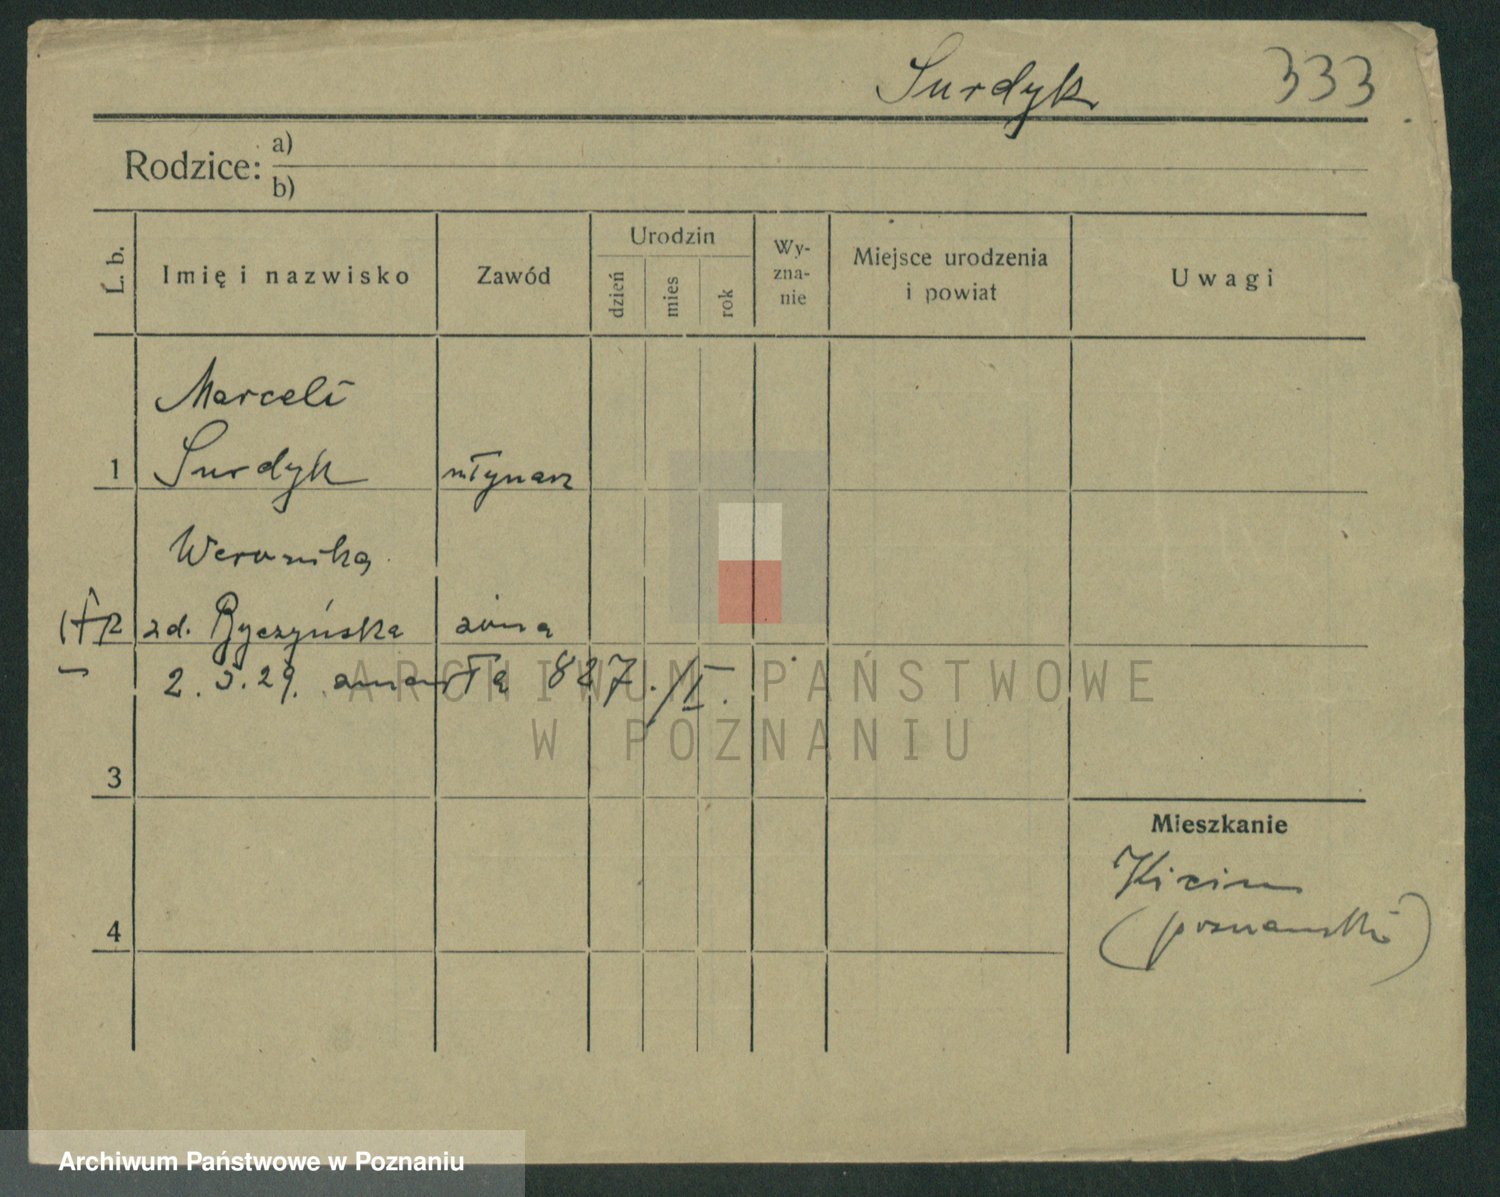 Surdyk 333
Rodzice: a)
b)
L. b. Imię i nazwisko Zawód Urodzin dzień mies rok Wy-zna-nie Miejsce urodzenia i powiat Uwagi
Marceli
1 Surdyk młynarz
Weronika
2 zd. Byczyńska żona
2. 5. 29. zmarła 827./I.
3
Mieszkanie
Kicin
4 (poznański)
ARCHIWUM PAŃSTWOWE
W POZNANIU
Archiwum Państwowe w Poznaniu